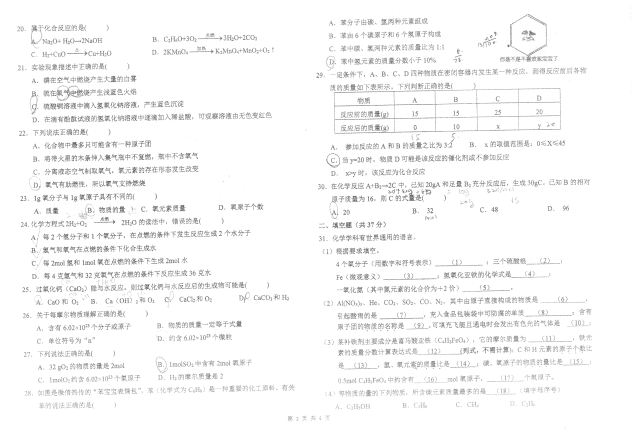 20．属于化合反应的是( )
A．Na₂O+ H₂O=2NaOH B．C₂H₅O+3O₂ 点燃 3H₂O+2CO₂
C．H₂+CuO △ Cu+H₂O D．2KMnO₄ 加热 K₂MnO₄+MnO₂+O₂↑
21．实验现象描述中正确的是( )
A．磷在空气中燃烧产生大量的白雾
B．硫在氧气中燃烧产生浅蓝色火焰
C．硫酸铜溶液中滴入氢氧化钠溶液，产生蓝色沉淀
D．在滴有酚酞试液的氢氧化钠溶液中逐滴加入稀盐酸，可观察溶液由无色变红色
22．下列说法正确的是( )
A．化合物中最多只可能含有一种原子团
B．将带火星的木条伸入集气瓶中不复燃，瓶中不含氧气
C．分离液态空气制取氧气，氧元素的存在形态发生改变
D．氧气有助燃性，所以氧气支持燃烧
23．1g 氧分子与1g 氧原子具有不同的( )
A．质量 B．物质的量 C．氧元素质量 D．氧原子个数
24．化学方程式 2H₂+O₂ 点燃 2H₂O 的读法中，错误的是( )
A．每2个氢分子和1个氧分子，在点燃的条件下发生反应生成2个水分子
B．氢气和氧气在点燃的条件下化合生成水
C．每2mol 氢和1mol 氧在点燃的条件下生成2mol 水
D．每4克氢气和32克氧气在点燃的条件下反应生成36克水
25．过氧化钙（CaO₂）除与水反应，则过氧化钙与水反应后的生成物可能是( )
A．CaO 和 O₂ B．Ca（OH）₂和 O₂ C．CaCl₂ 和 O₂ D．CaCO₃ 和 H₂
26．关于每摩尔物质理解正确的是( )
A．含有 6.02×10²³ 个分子或原子 B．物质的质量一定等于式量
C．单位符号为“n” D．约含 6.02×10²³ 个微粒
27．下列说法正确的是( )
A．32 gO₂ 的物质的量是2mol B．1molSO₂ 中含有2mol 氧原子
C．1molO₂ 约含 6.02×10²³ 个氧原子 D．H₂ 的摩尔质量是2
28．如图是微信热传的“苯宝宝表情包”，苯（化学式为 C₆H₆）是一种重要的化工原料。有关
苯的说法正确的是( )
A．苯分子由碳、氢两种元素组成
B．苯由6个碳原子和6个氢原子构成
C．苯中碳、氢两种元素的质量比为1:1
D．苯中氢元素的质量分数小于10%
29．一定条件下，A、B、C、D 四种物质在密闭容器内发生某一种反应，测得反应前后各物
质的质量如下表所示，下列判断正确的是( )
物质 A B C D
反应前的质量(g) 15 15 25 20
反应后的质量(g) 0 10 x y
A．参加反应的 A 和 B 的质量之比为3:2 B．x 的取值范围是：0≤X≤45
C．当 y=20 时，物质 D 可能是该反应的催化剂或不参加反应
D．x>y 时，该反应为化合反应
30．在化学反应 A+B₂=2C 中，已知20gA 和足量 B₂ 充分反应后，生成30gC，已知 B 的相对
原子质量为16，则 C 的式量是( )
A．20 B．32 C．48 D．96
二、填空题（共 37 分）
31．化学学科有世界通用的语言。
（1）根据要求填空。
4个氧分子（用数字和符号表示） （1） ；三个硫酸根 （2） ；
Fe（微观意义） （3） ，氮氧化亚铁的化学式是 （4） ；
一氧化氮（其中氮元素的化合价为+2 价） （5） 。
（2）Al(NO₃)₃、He、CO₂、SO₂、CO、N₂，其中由原子直接构成的物质是 （6） ，
引起酸雨的是 （7） ，充入食品包装袋中可防腐的单质 （8） ；含有
原子团的物质的名称是 （9） ，可填充飞艇且通电时会发出有色光的气体是 （10）；
0.5mol C₄H₂FeO₄ 中约含有 （16） mol 氧原子， （17） 个氧原子。
（4）等物质的量的下列物质，所含碳元素质量最多的是 （18） （填字母序号）
A．C₂H₅OH B．C₃H₈ C．CH₄ D．C₂H₂
第 2 页 共 4 页